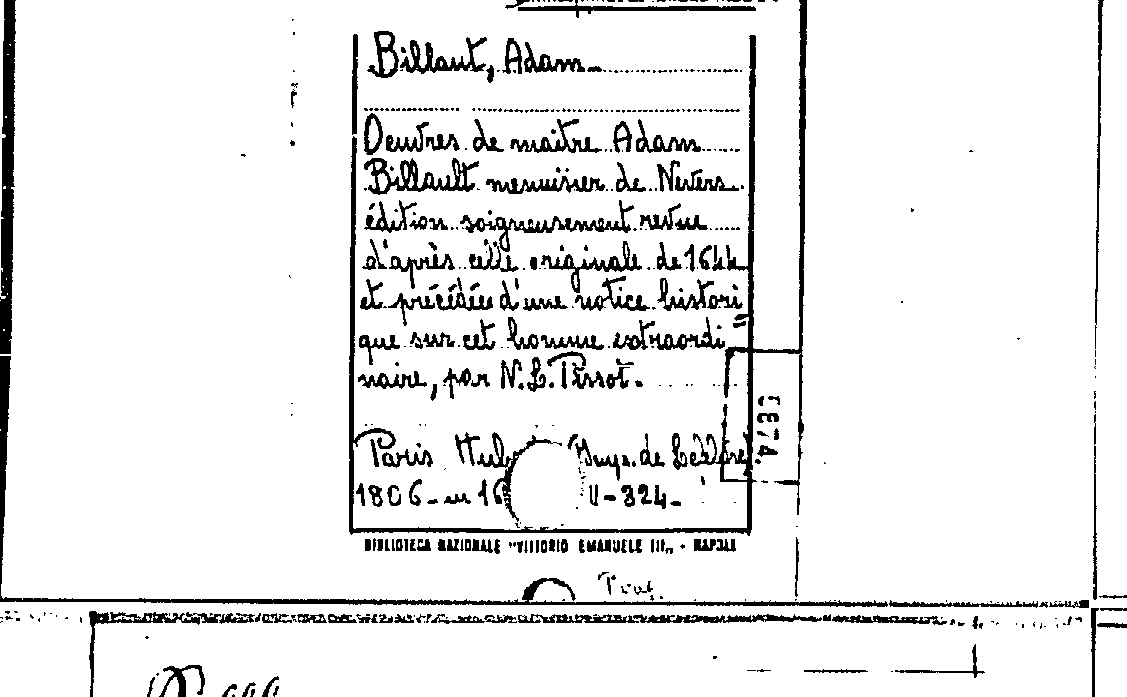 Billaut, Adam
Oeuvres de maître Adam
Billault menuisier de Nevers
édition soigneusement revue
d'après celle originale de 1644
et précédée d'une notice histori=
que sur cet homme extraordi
naire, par N.L. Pissot.
Paris Hub (Impr. de
1806 - in 16 - 324 -
BIBLIOTECA NAZIONALE "VITTORIO EMANUELE III" - NAPOLI